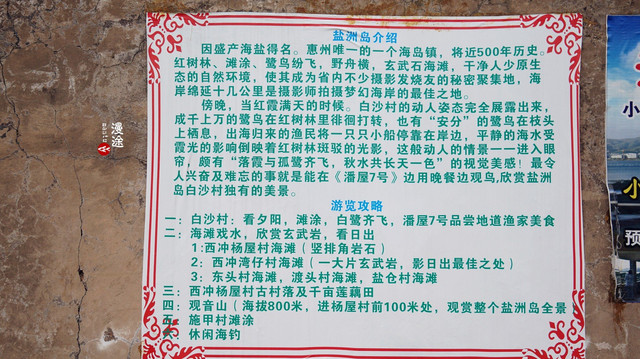 盐洲岛介绍
因盛产海盐得名。惠州唯一的一个海岛镇，将近500年历史。
红树林、滩涂、鹭鸟纷飞，野舟横，玄武石海滩，干净人少原生
态的自然环境，使其成为省内不少摄影发烧友的秘密聚集地，海
岸绵延十几公里是摄影师拍摄梦幻海岸的最佳之地。
傍晚，当红霞满天的时候。白沙村的动人姿态完全展露出来，
成千上万的鹭鸟在红树林里徘徊打转，也有“安分”的鹭鸟在枝头
上栖息，出海归来的渔民将一只只小船停靠在岸边，平静的海水受
霞光的影响倒映着红树林斑驳的光影，这般动人的情景一一进入眼
帘，颇有“落霞与孤鹭齐飞，秋水共长天一色”的视觉美感！最令
人兴奋及难忘的事就是能在《潘屋7号》边用晚餐边观鸟,欣赏盐洲
岛白沙村独有的美景。
游览攻略
一：白沙村：看夕阳，滩涂，白鹭齐飞，潘屋7号品尝地道渔家美食
二：海滩戏水，欣赏玄武岩，看日出
1:西冲杨屋村海滩（竖排角岩石）
2：西冲湾仔村海滩（一大片玄武岩，影日出最佳之处）
3：东头村海滩，渡头村海滩，盐仓村海滩
三：西冲杨屋村古村落及千亩莲藕田
四：观音山（海拔800米，进杨屋村前100米处，观赏整个盐洲岛全景
五：施甲村滩涂
六：休闲海钓
漫途
小
小
预